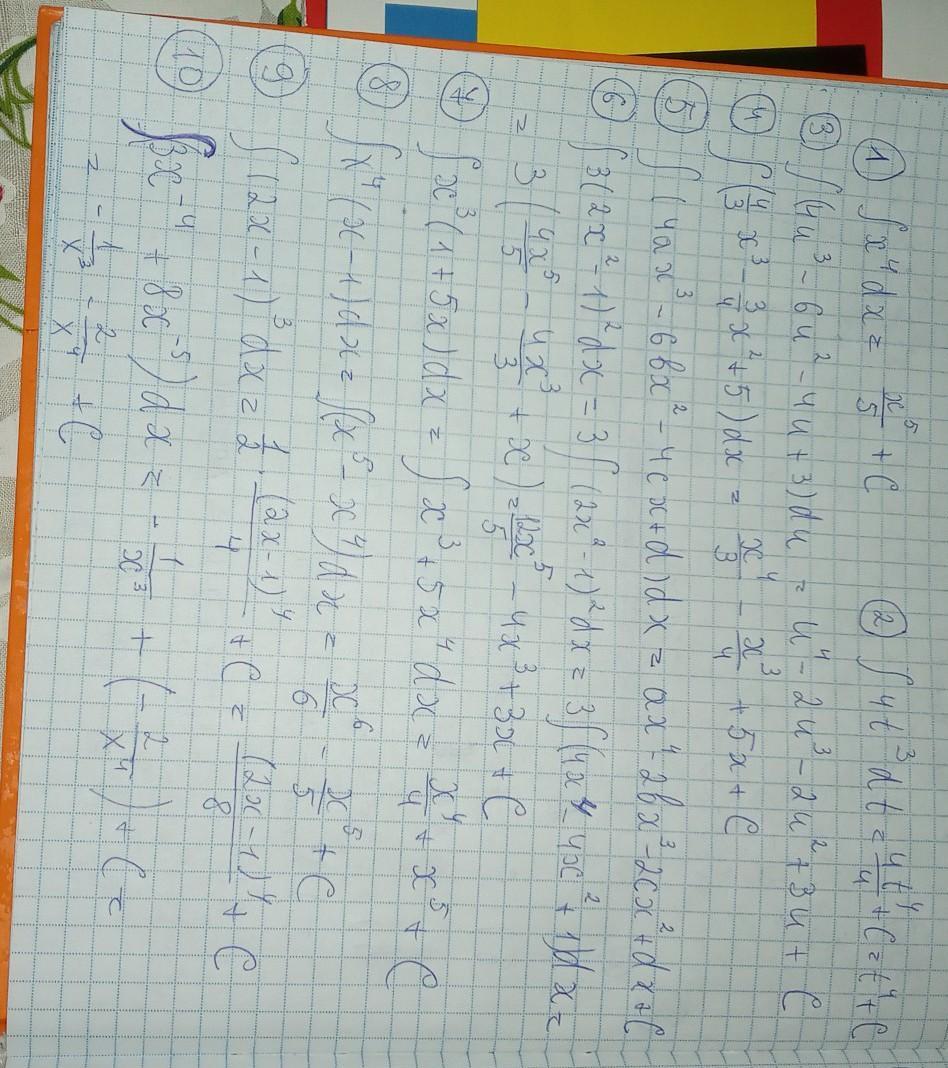 ① ∫x⁴dx = x⁵/5 + C ② ∫4t³dt = 4t⁴/4 + C = t⁴ + C
③ ∫(4u³ - 6u² - 4u + 3)du = u⁴ - 2u³ - 2u² + 3u + C
④ ∫(4/3 x³ - 3/4 x² + 5)dx = x⁴/3 - x³/4 + 5x + C
⑤ ∫(4ax³ - 6bx² - 4cx + d)dx = ax⁴ - 2bx³ - 2cx² + dx + C
⑥ ∫3(2x² - 1)²dx = 3∫(2x² - 1)²dx = 3∫(4x⁴ - 4x² + 1)dx =
= 3(4x⁵/5 - 4x³/3 + x) = 12x⁵/5 - 4x³ + 3x + C
⑦ ∫x³(1 + 5x)dx = ∫x³ + 5x⁴dx = x⁴/4 + x⁵ + C
⑧ ∫x⁴(x - 1)dx = ∫(x⁵ - x⁴)dx = x⁶/6 - x⁵/5 + C
⑨ ∫(2x - 1)³dx = 1/2 · (2x - 1)⁴/4 + C = (2x - 1)⁴/8 + C
⑩ ∫(3x⁻⁴ + 8x⁻⁵)dx = - 1/x³ + (- 2/x⁴) + C =
= - 1/x³ - 2/x⁴ + C